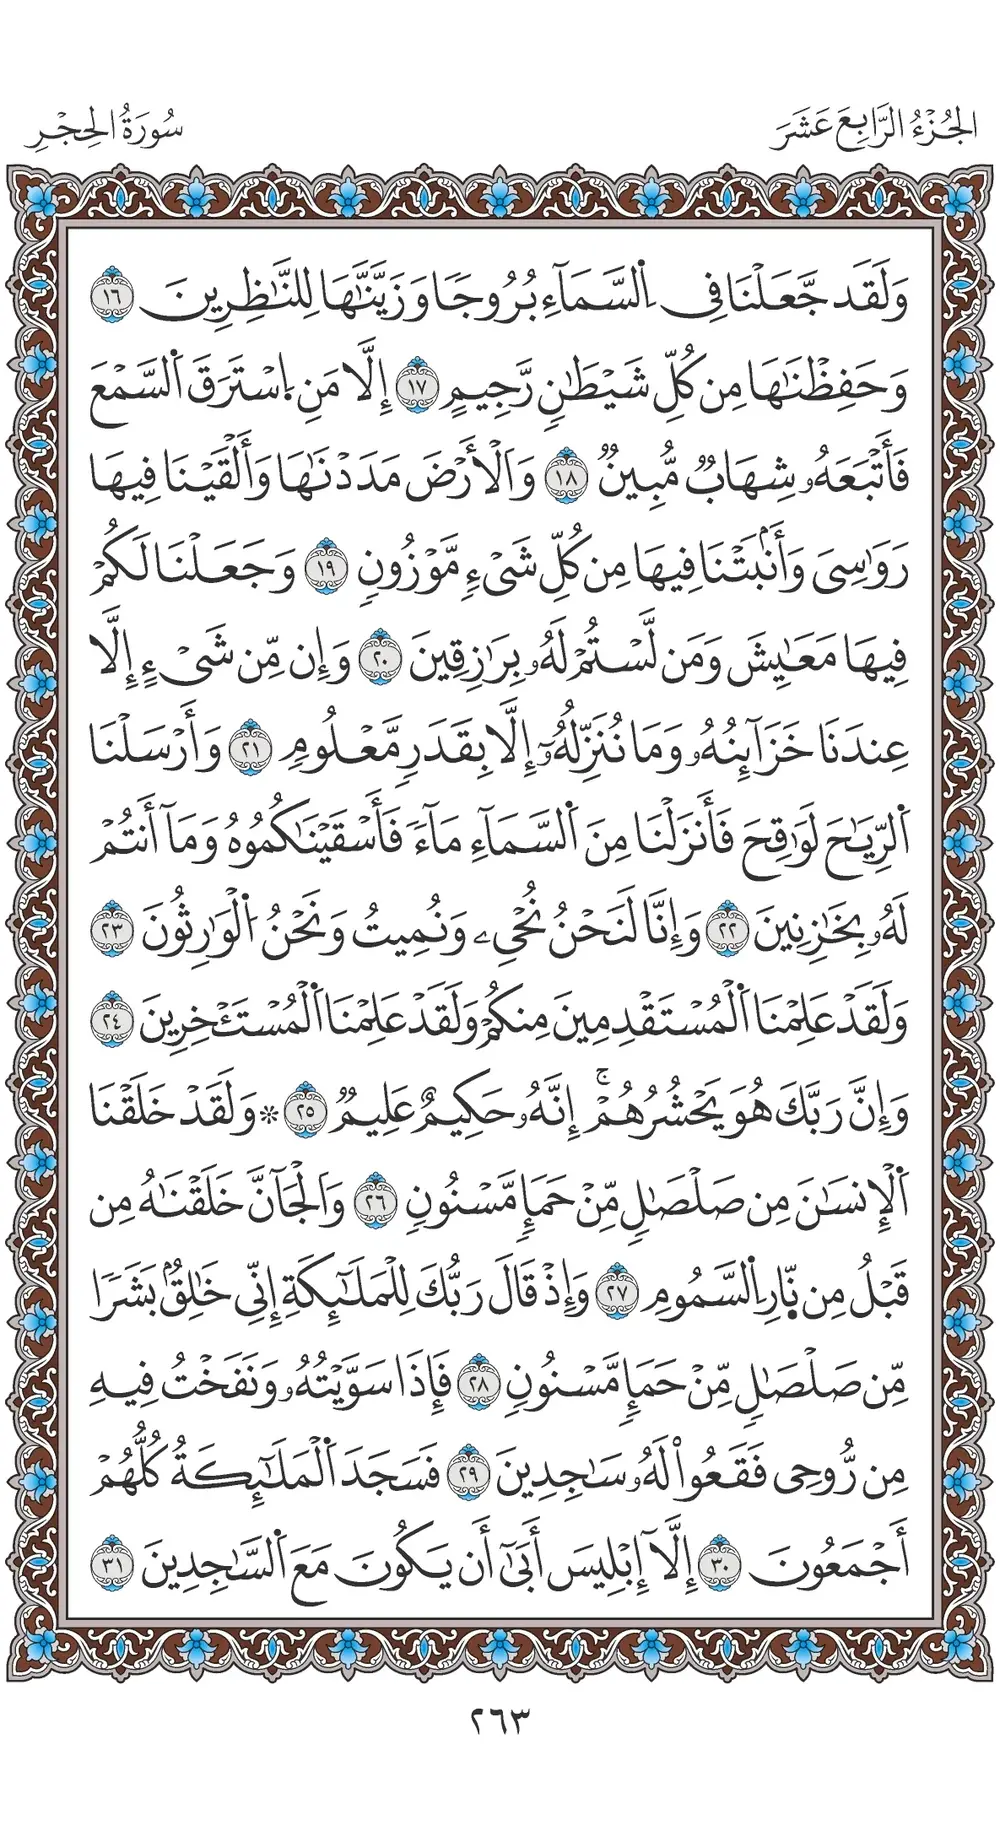 الجُزْءُ الرَّابِعَ عَشَرَ
سُورَةُ الحِجْرِ
وَلَقَد جَّعَلْنَا فِي اِ۬لسَّمَآءِ بُرُوجًا وَزَيَّنَّٰهَا لِلنَّٰظِرِينَ ١٦
وَحَفِظْنَٰهَا مِن كُلِّ شَيْطَٰنٖ رَّجِيمٍ ١٧ إِلَّا مَنِ اِ۪سْتَرَقَ اَ۬لسَّمْعَ
فَأَتْبَعَهُۥ شِهَابٞ مُّبِينٞ ١٨ وَالْأَرْضَ مَدَدْنَٰهَا وَأَلْقَيْنَا فِيهَا
رَوَٰسِيَ وَأَنۢبَتْنَا فِيهَا مِن كُلِّ شَيْءٖ مَّوْزُونٖ ١٩ وَجَعَلْنَا لَكُمْ
فِيهَا مَعَٰيِشَ وَمَن لَّسْتُمْ لَهُۥ بِرَٰزِقِينَ ٢٠ وَإِن مِّن شَيْءٍ إِلَّا
عِندَنَا خَزَآئِنُهُۥ وَمَا نُنَزِّلُهُۥٓ إِلَّا بِقَدَرٖ مَّعْلُومٖ ٢١ وَأَرْسَلْنَا
اَ۬لرِّيَٰحَ لَوَٰقِحَ فَأَنزَلْنَا مِنَ اَ۬لسَّمَآءِ مَآءٗ فَأَسْقَيْنَٰكُمُوهُ وَمَآ أَنتُمْ
لَهُۥ بِخَٰزِنِينَ ٢٢ وَإِنَّا لَنَحْنُ نُحْيِۦ وَنُمِيتُ وَنَحْنُ اُ۬لْوَٰرِثُونَ ٢٣
وَلَقَدْ عَلِمْنَا اَ۬لْمُسْتَقْدِمِينَ مِنكُمْ وَلَقَدْ عَلِمْنَا اَ۬لْمُسْتَـْٔخِرِينَ ٢٤
وَإِنَّ رَبَّكَ هُوَ يَحْشُرُهُمْۚ إِنَّهُۥ حَكِيمٌ عَلِيمٞ ٢٥ ۞وَلَقَدْ خَلَقْنَا
اَ۬لْإِنسَٰنَ مِن صَلْصَٰلٖ مِّنْ حَمَإٖ مَّسْنُونٖ ٢٦ وَالْجَآنَّ خَلَقْنَٰهُ مِن
قَبْلُ مِن نّ۪ارِ اِ۬لسَّمُومِ ٢٧ وَإِذْ قَالَ رَبُّكَ لِلْمَلَٰٓئِكَةِ إِنِّي خَٰلِقُۢ بَشَرٗا
مِّن صَلْصَٰلٖ مِّنْ حَمَإٖ مَّسْنُونٖ ٢٨ فَإِذَا سَوَّيْتُهُۥ وَنَفَخْتُ فِيهِ
مِن رُّوحِي فَقَعُواْ لَهُۥ سَٰجِدِينَ ٢٩ فَسَجَدَ اَ۬لْمَلَٰٓئِكَةُ كُلُّهُمْ
أَجْمَعُونَ ٣٠ إِلَّآ إِبْلِيسَ أَبَىٰٓ أَن يَكُونَ مَعَ اَ۬لسَّٰجِدِينَ ٣١
٢٦٣